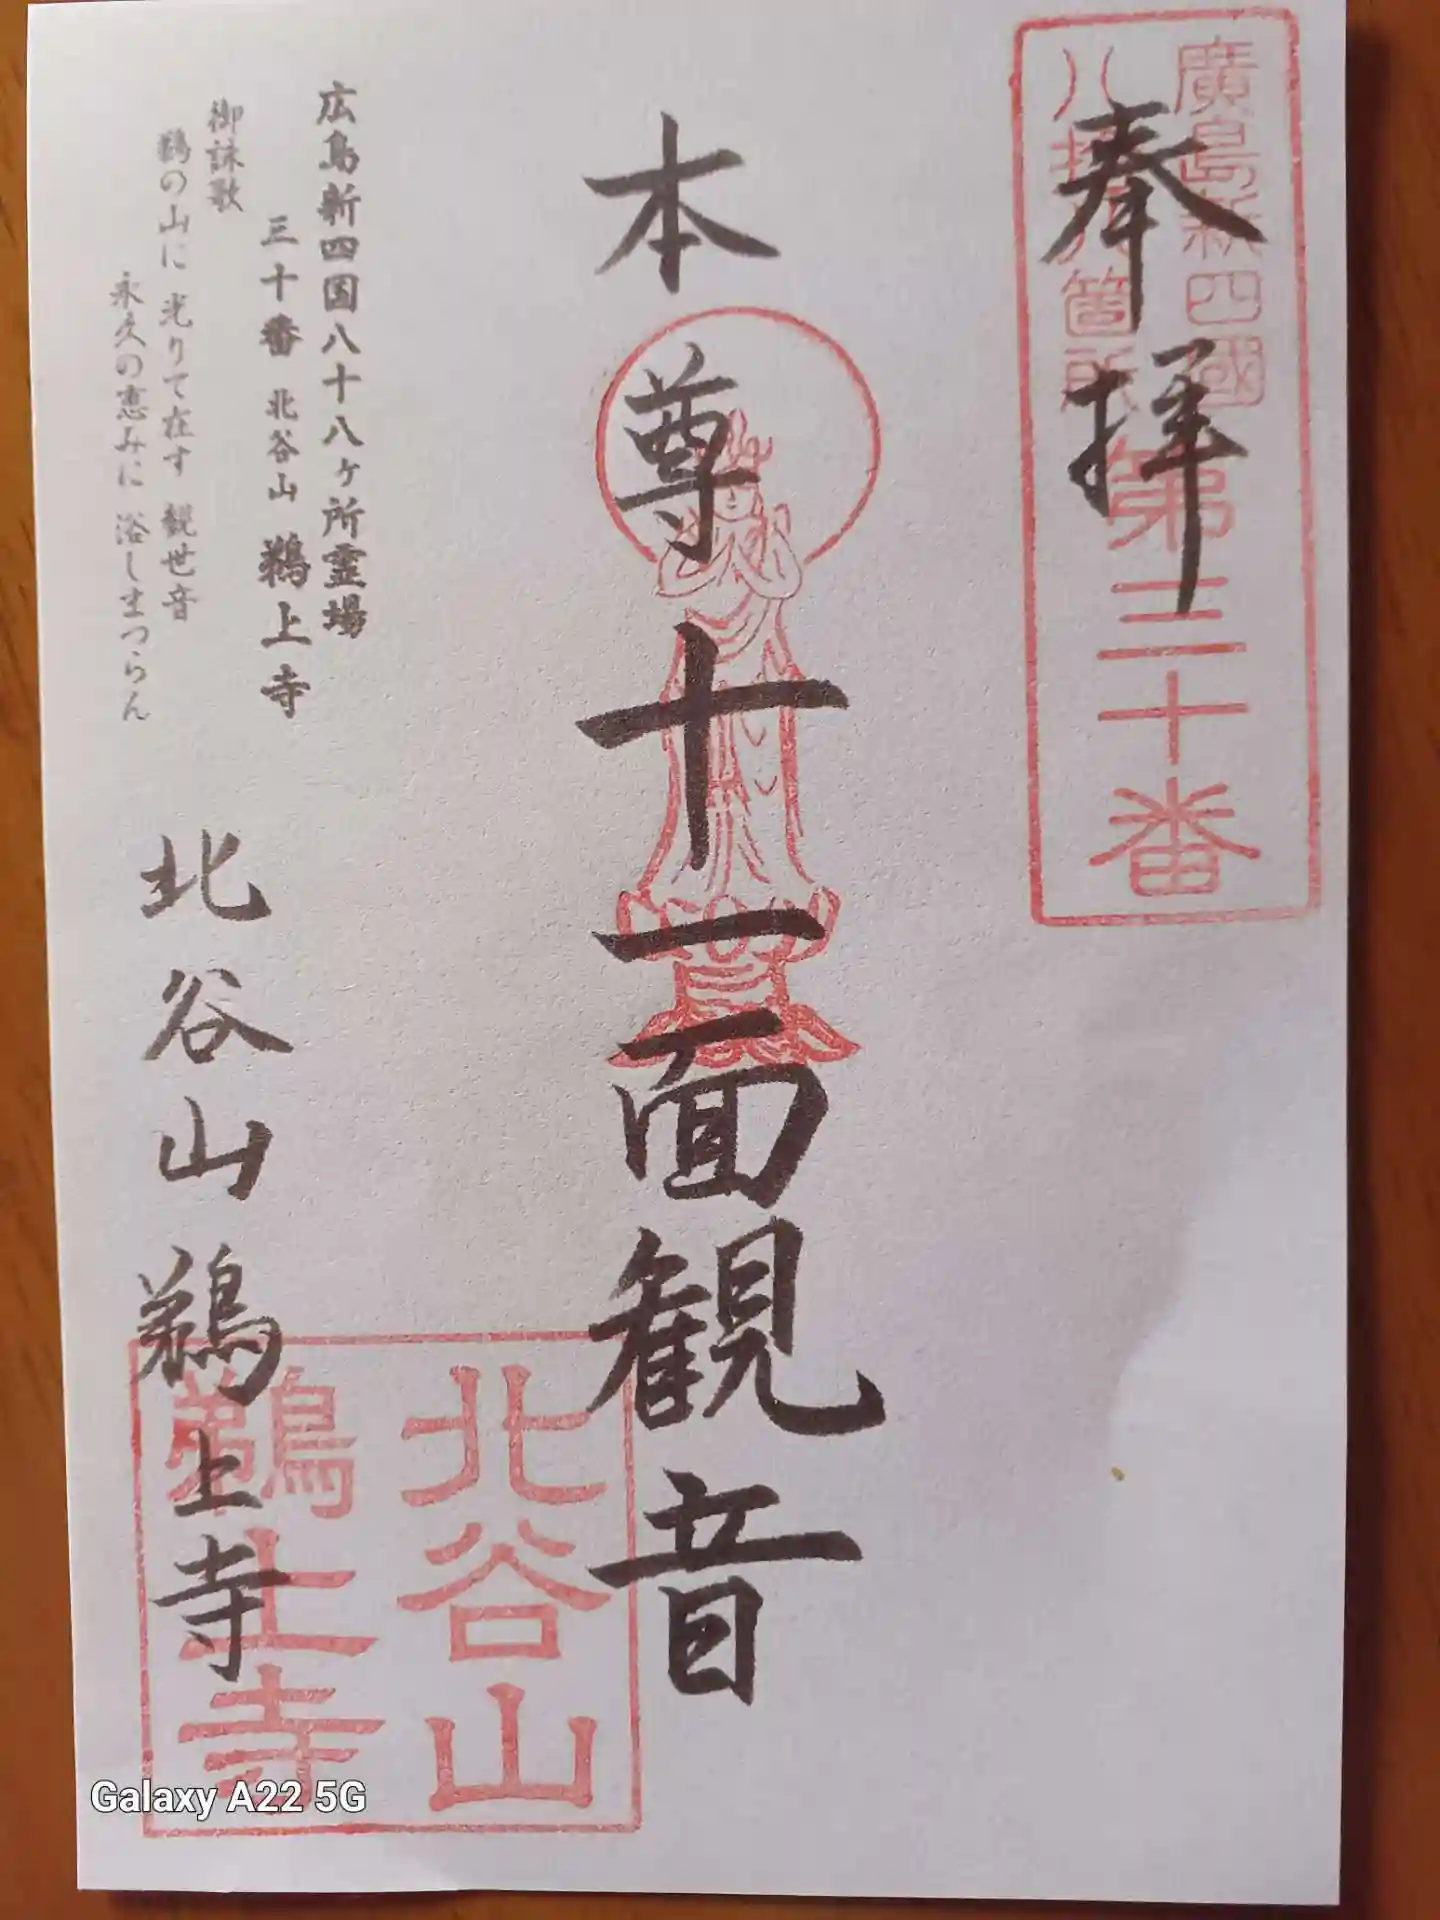 奉拝
廣島新四國
八拾八箇所
第三十番
本尊十一面観音
広島新四国八十八ヶ所霊場
三十番 北谷山 鵜上寺
御詠歌
鵜の山に 光りて在す 観世音
永久の恵みに 浴しまつらん
北谷山 鵜上寺
北谷山
鵜上寺
Galaxy A22 5G